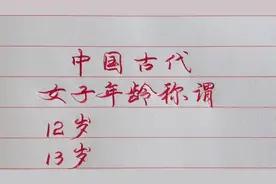 中国古代
女子年龄称谓
12岁
13岁